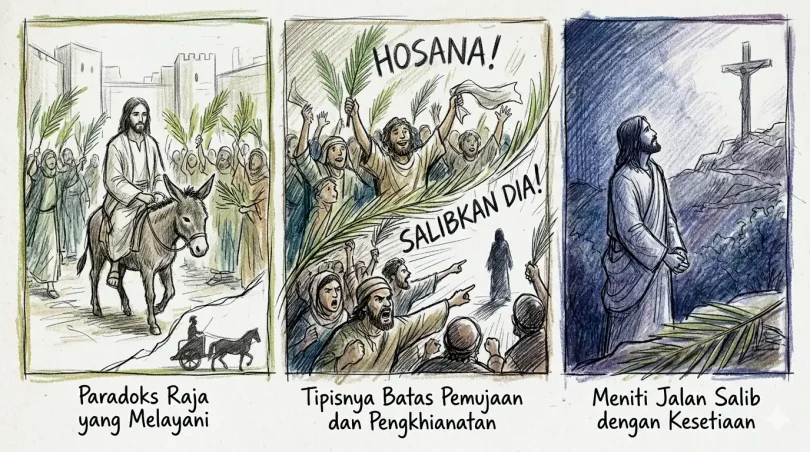 HOSANA!
SALIBKAN DIA!
Paradoks Raja
yang Melayani
Tipisnya Batas Pemujaan
dan Pengkhianatan
Meniti Jalan Salib
dengan Kesetiaan